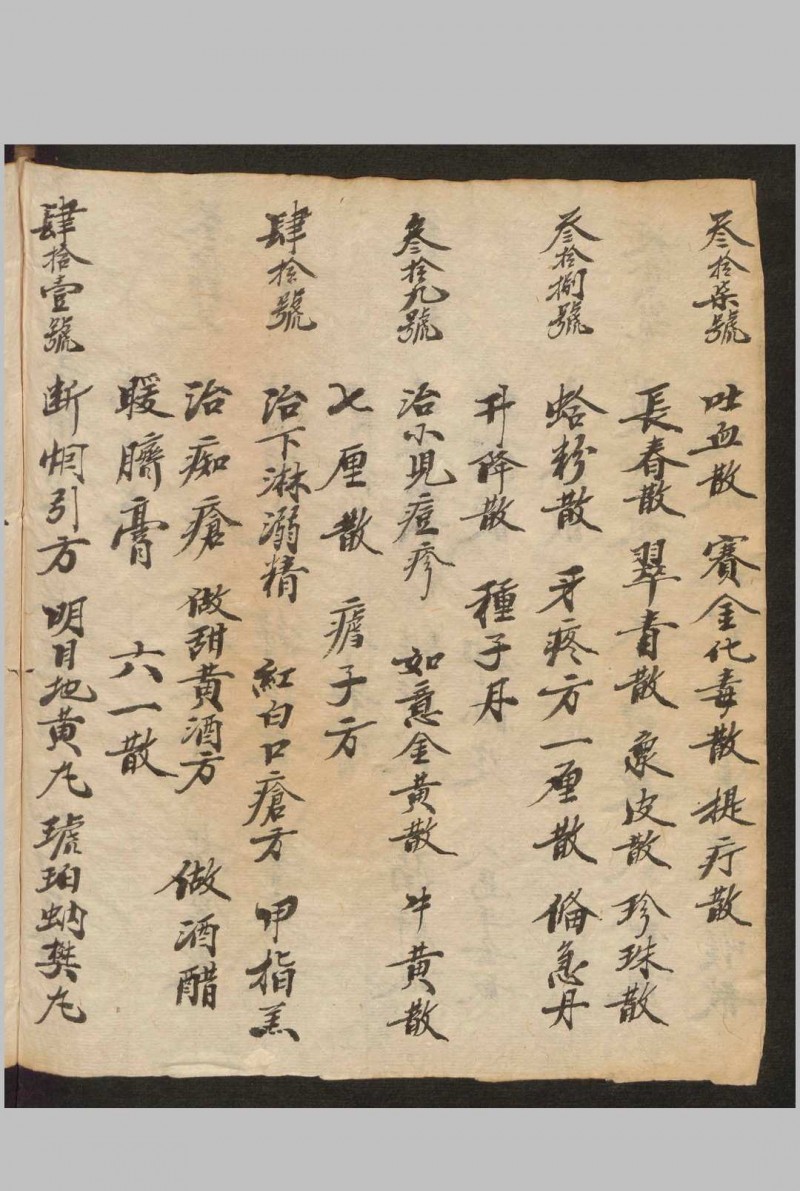 叁拾柒號 吐血散 賽金化毒散 提疔散
長春散 翠青散 象皮散 珍珠散
叁拾捌號 蛤粉散 牙疼方 一厘散 偹急丹
升降散 種子丹
叁拾九號 治小児痘疹 如意金黄散 牛黄散
七厘散 瘄子方
肆拾號 治下淋溺精 紅白口瘡方 甲指羔
治痴瘡 做甜黄酒方 做酒醋
暖臍膏 六一散
肆拾壹號 断烟引方 明目地黄丸 琥珀蚋樊丸